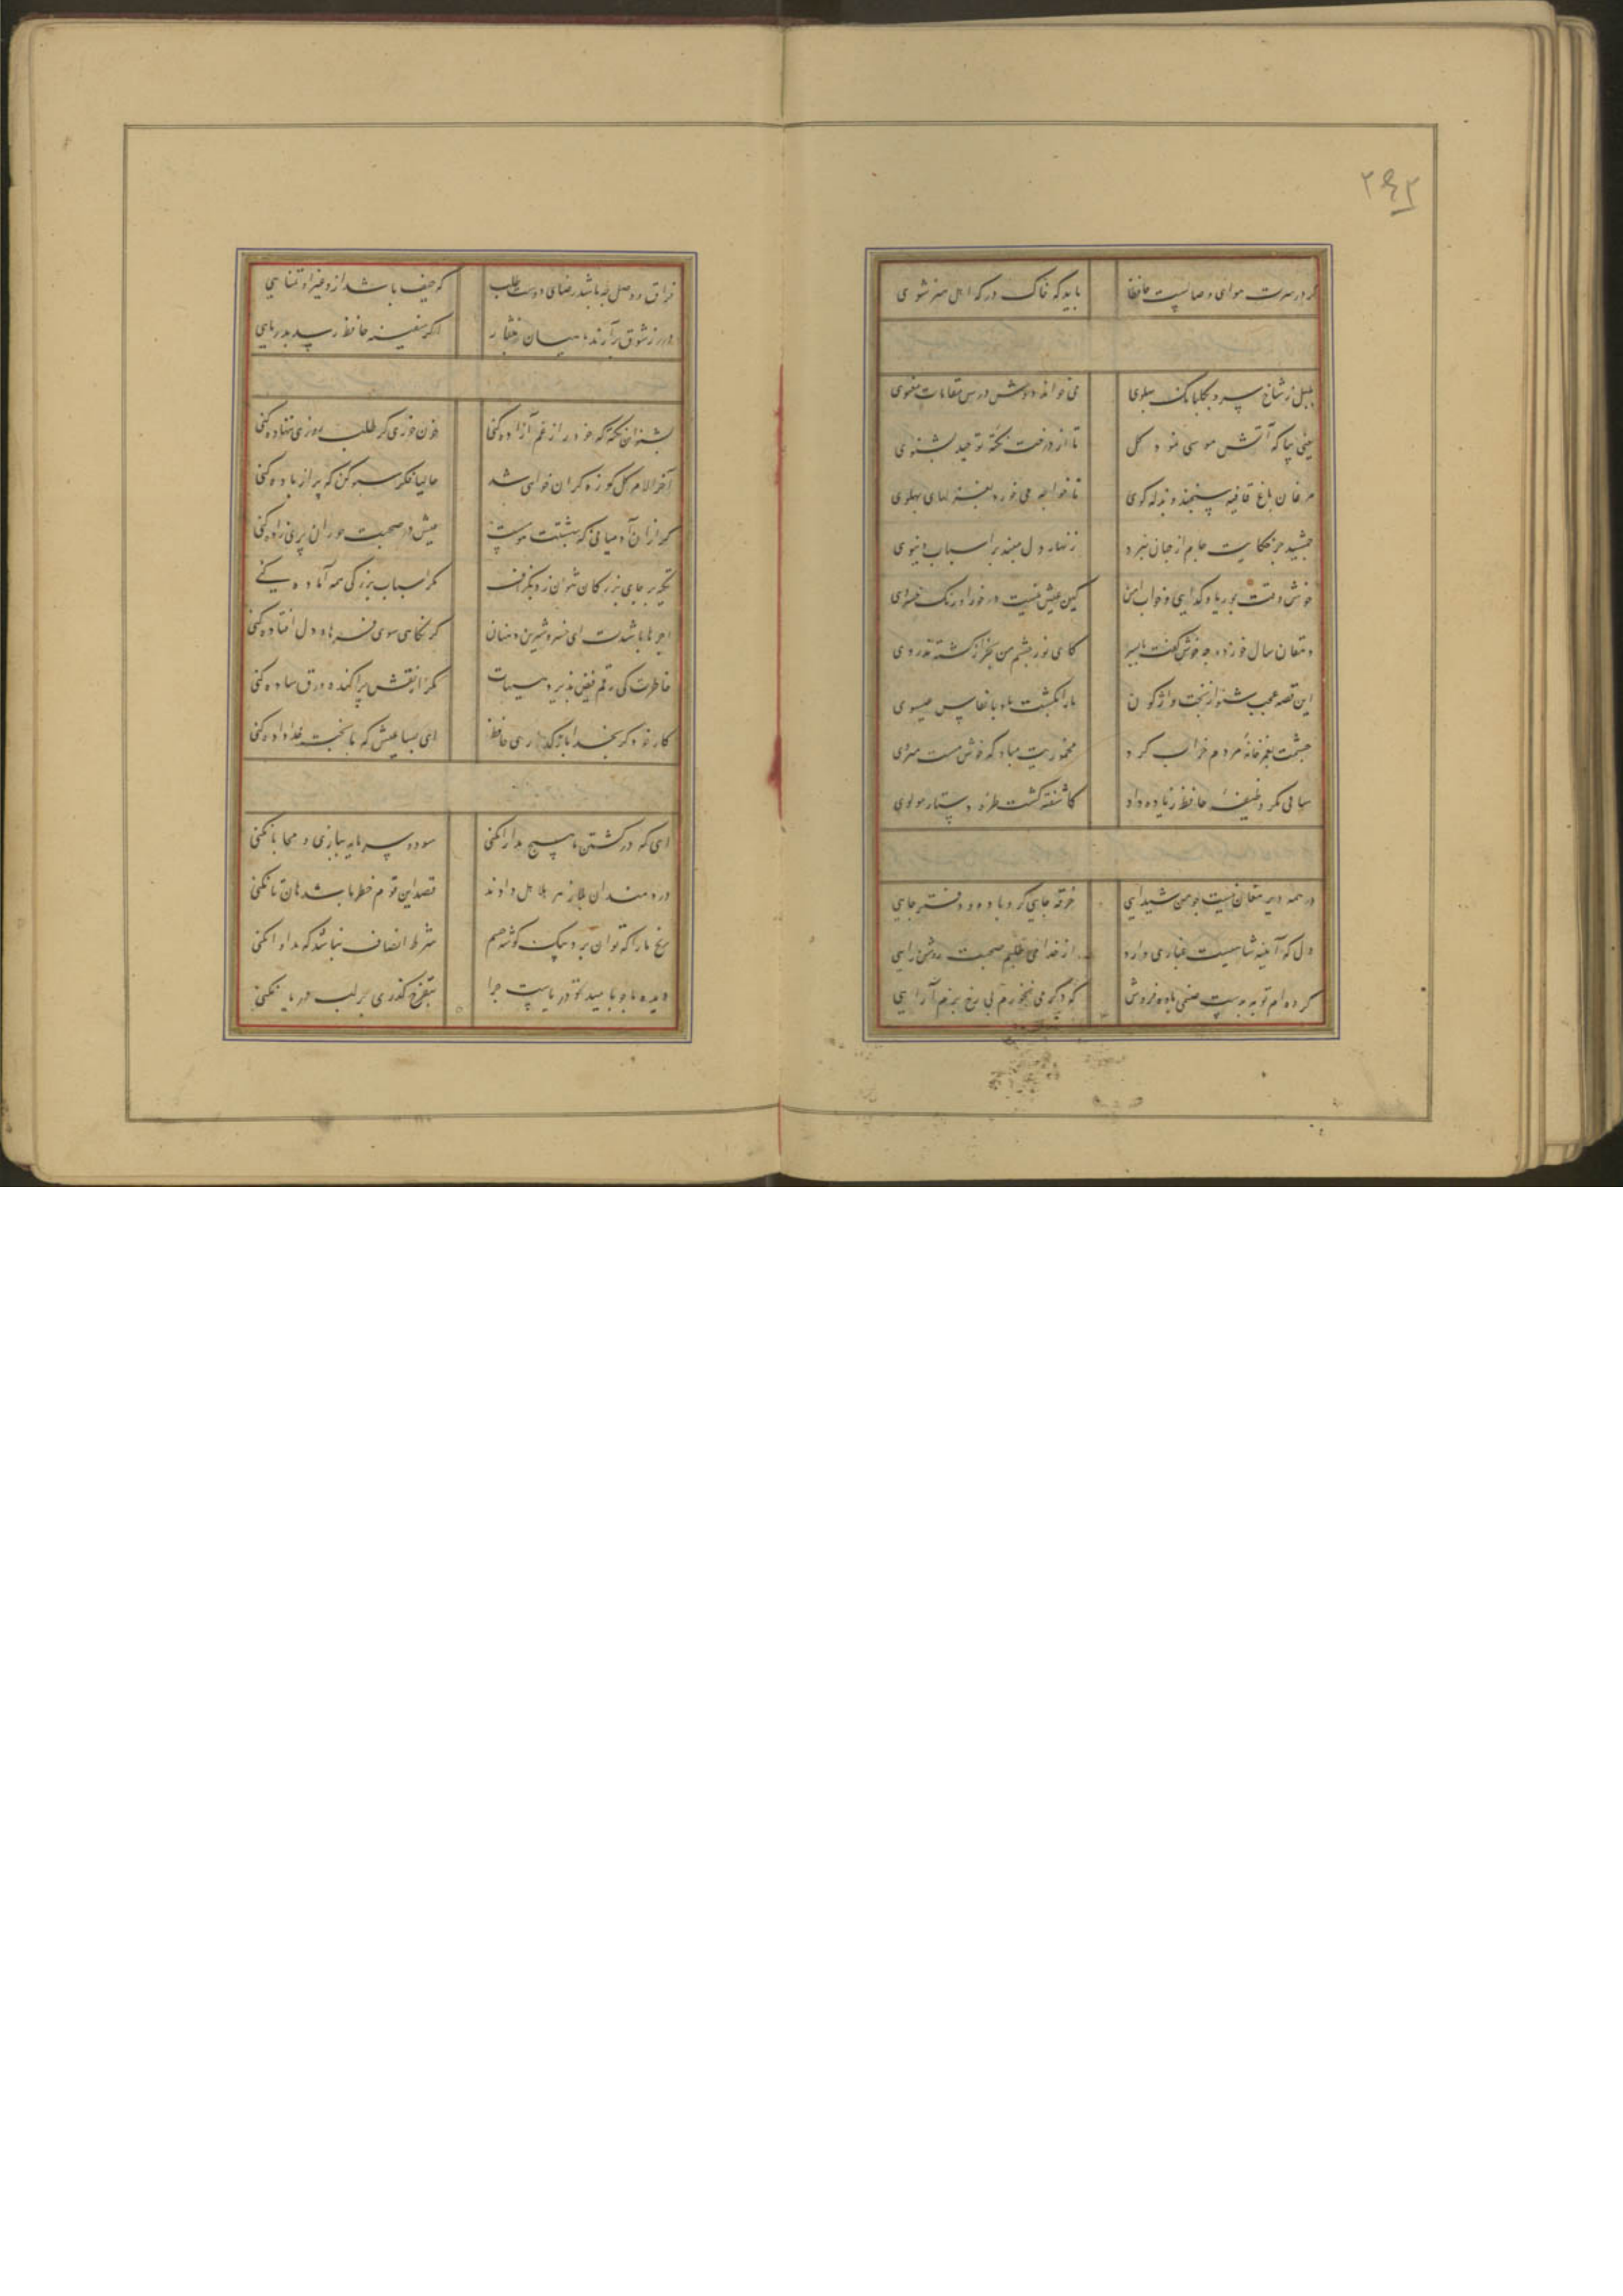 ۲۴۲
گر در سرت هوای وصالیست حافظا باید که خاک درگه اهل هنر شوی
بلبل ز شاخ سرو بگلبانگ پهلوی می خواند دوش درس مقامات معنوی
یعنی بیا که آتش موسی نمود گل تا از درخت نکته توحید بشنوی
مرغان باغ قافیه سنجند و بذله گوی تا خواجه می خورد بغزلهای پهلوی
جمشید جز حکایت جام از جهان نبرد زنهار دل مبند بر اسباب دنیوی
خوش وقت بوریا و گدایی و خواب امن کین عیش نیست در خور اورنگ خسروی
دهقان سال خورده چه خوش گفت با پسر کای نور چشم من بجز از کشته ندروی
این قصه عجب شنو از بخت واژگون ما را بکشت یار بانفاس عیسوی
چشمت بغمزه خانه مردم خراب کرد مخموریت مباد که خوش مست میروی
ساقی مگر وظیفه حافظ زیاده داد کاشفته گشت طره دستار مولوی
در همه دیر مغان نیست چو من شیدایی خرقه جایی گرو باده و دفتر جایی
دل که آیینه شاهیست غباری دارد از خدا می طلبم صحبت روشن رایی
کرده ام توبه بدست صنمی باده فروش که دگر می نخورم بی رخ بزم آرایی
فراق و وصل چه باشد رضای دوست طلب که حیف باشد ازو غیر او تمنایی
درر ز شوق برآرند ماهیان بنثار اگر سفینه حافظ رسد بدریایی
بشنو این نکته که خود را ز غم آزاده کنی خون خوری گر طلب روزی ننهاده کنی
آخر الامر گل کوزه گران خواهی شد حالیا فکر سبو کن که پر از باده کنی
گر از آن آدمیانی که بهشتت هوست عیش در صحبت حوران پری زاده کنی
تکیه بر جای بزرگان نتوان زد بگزاف مگر اسباب بزرگی همه آماده کنی
اجرها باشدت ای خسرو شیرین دهنان گر نگاهی سوی فرهاد دل افتاده کنی
خاطرت کی رقم فیض پذیرد هیهات مگر از نقش پراکنده ورق ساده کنی
کار خود گر بخدا بازگذاری حافظ ای بسا عیش که با بخت خداداده کنی
ای که در کشتن ما هیچ مدارا نکنی سود و سرمایه بسازی و محابا نکنی
دردمندان بلا زهر هلاهل دارند قصد این قوم خطر باشد هان تا نکنی
رنج ما را که توان برد بیک گوشه چشم شرط انصاف نباشد که مداوا نکنی
دیده ما چو بامید تو دریاست چرا بتفرج گذری بر لب دریا نکنی